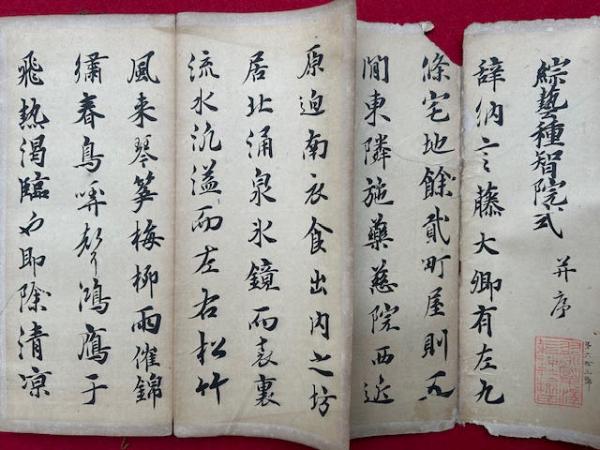 綜藝種智院式 并序
辞納言藤大卿有左九
條宅地餘貳町屋則五
間東隣施藥慈院西近
原迫南衣食出内之坊
居北涌泉氷鏡而表裏
流水汎溢而左右松竹
風来琴箏梅柳雨催錦
繡春鳥哢聲鴻鴈于
飛熱渇臨即除清凉